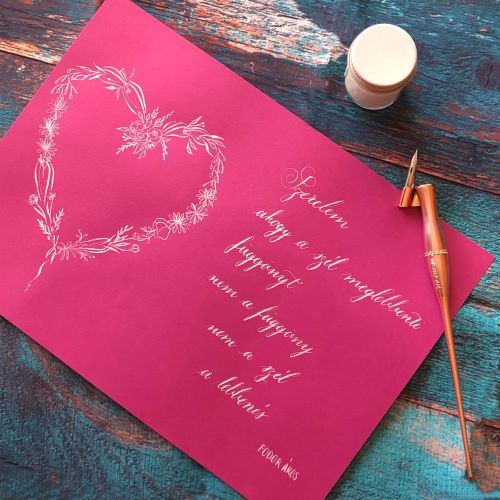 Szerelem
ahogy a szél meglebbenti
függönyt
nem a függöny
nem a szél
a lebbenés
FODOR ÁKOS